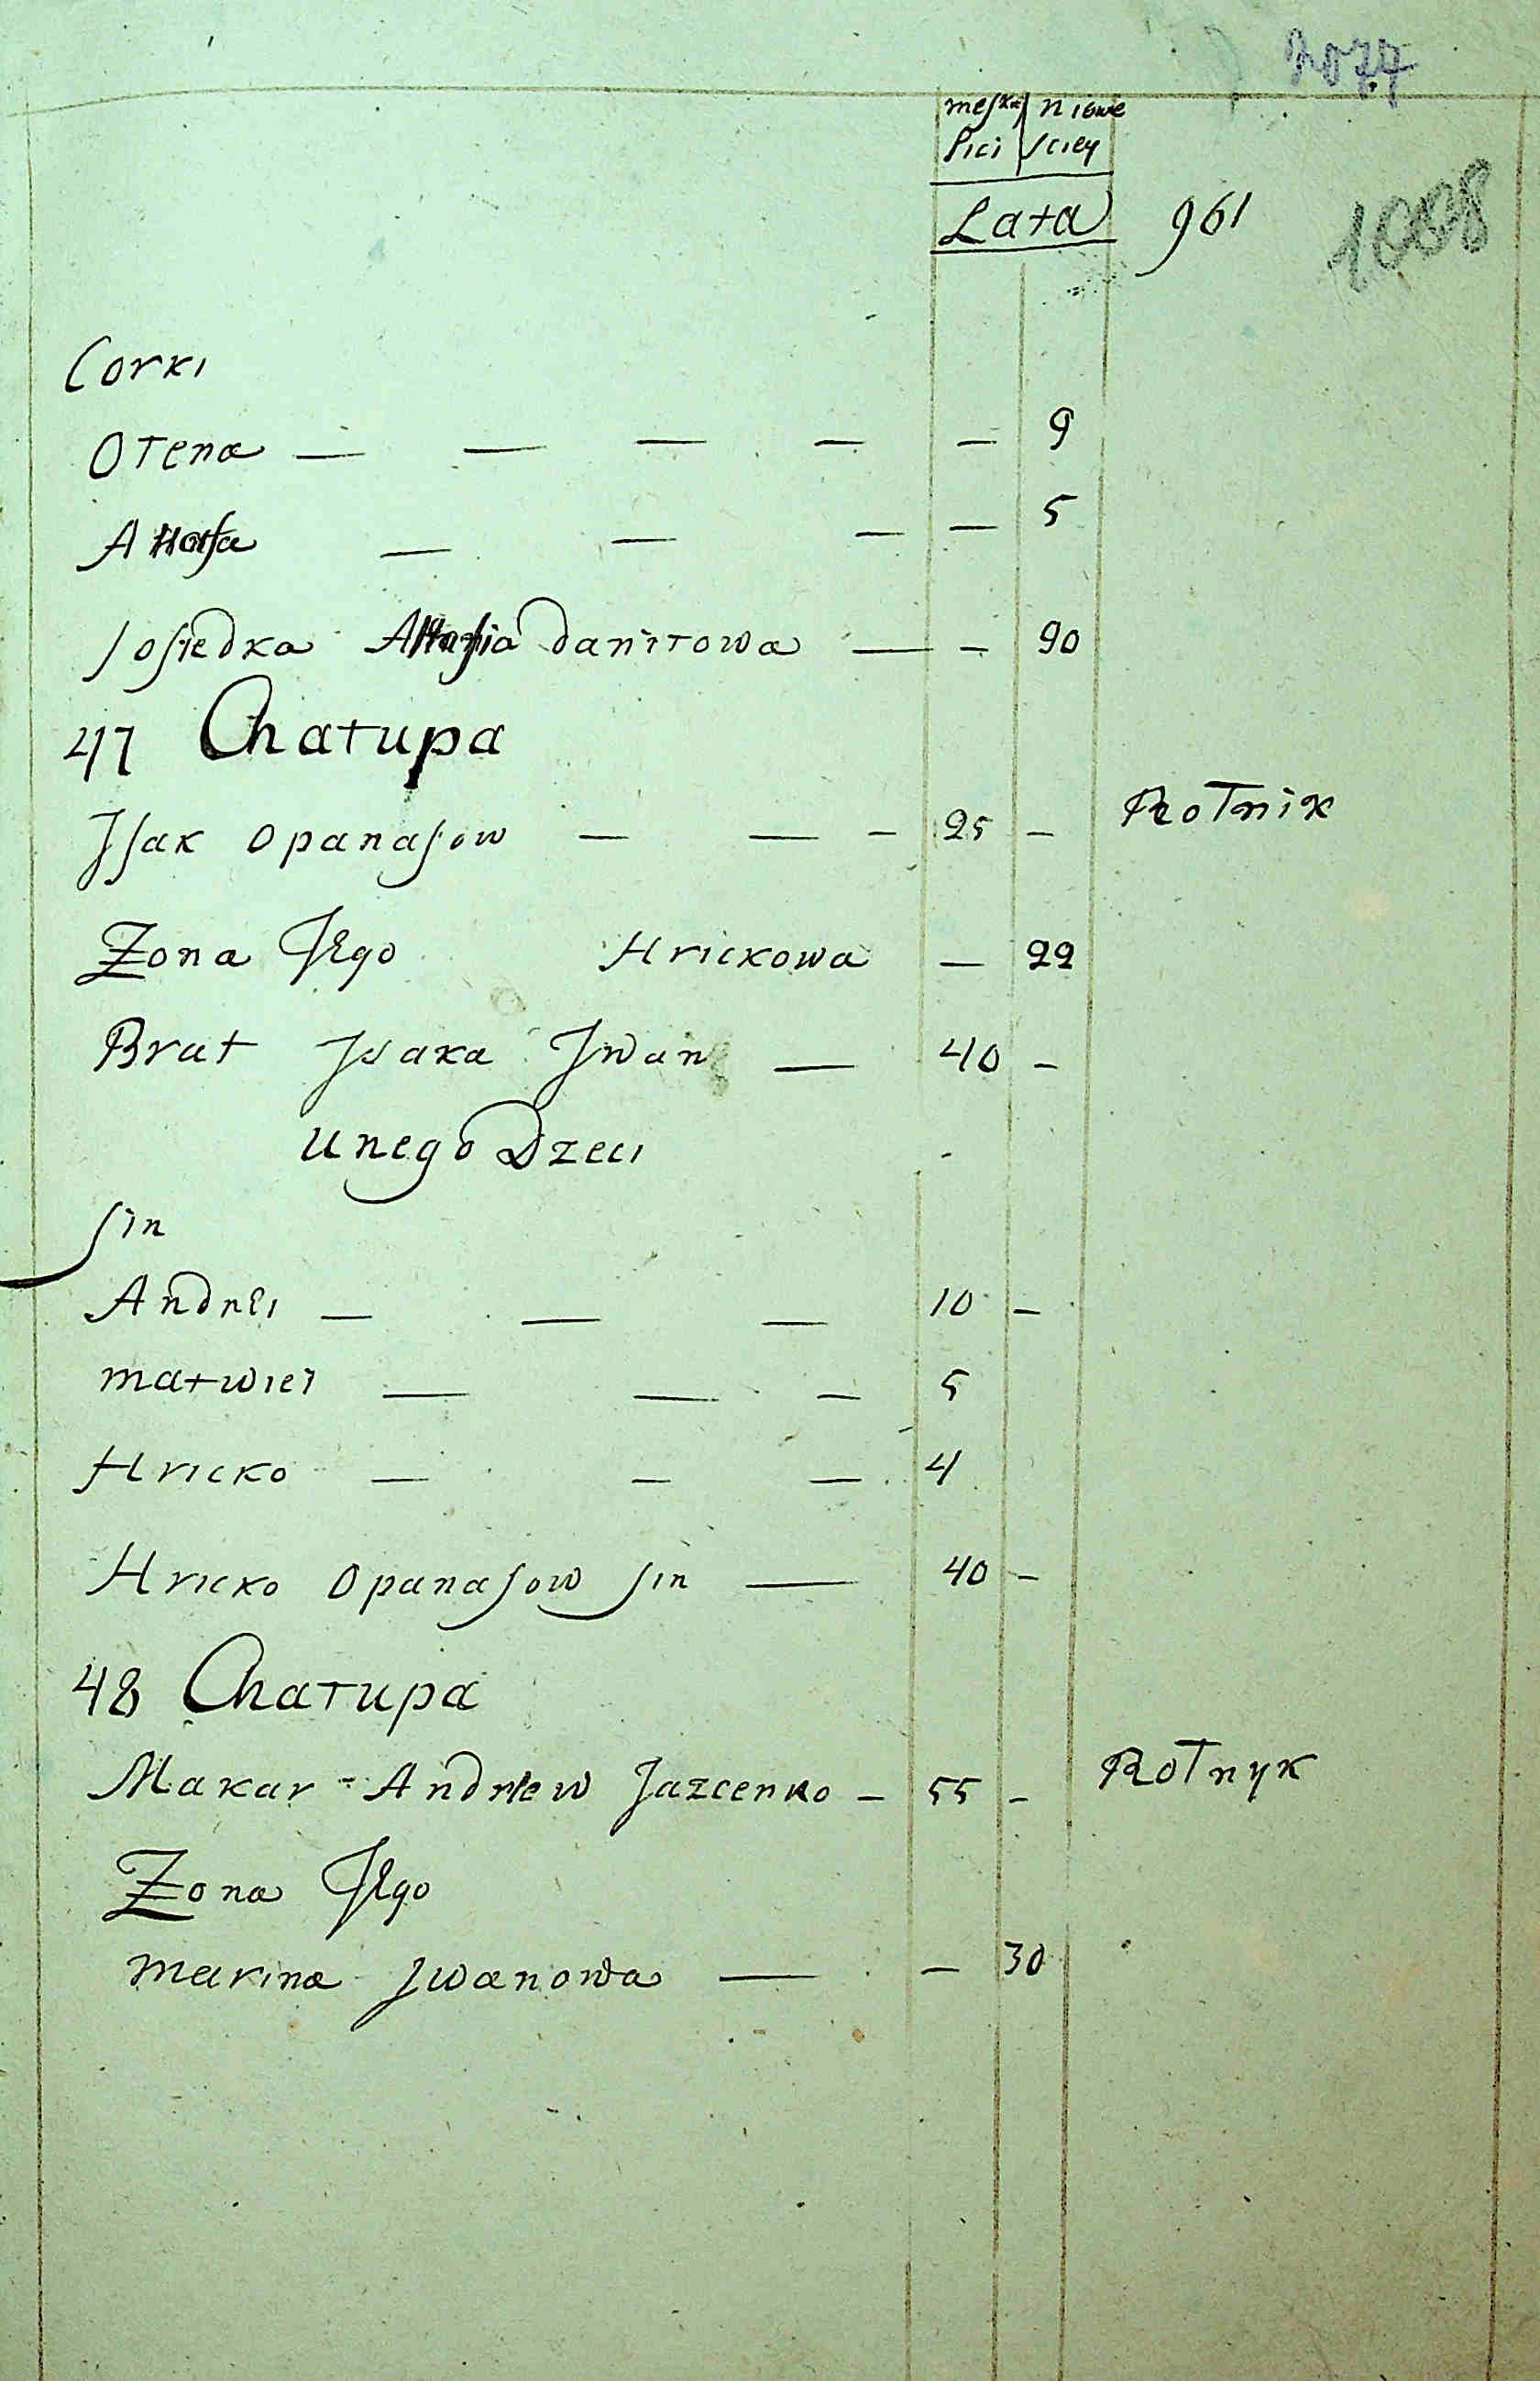 mesKa niewe
Pici sciey
Lata 961
1008
Corki
Otena — — — — — 9
— — — — 5
sosiedka danitowa — — 90
47 Chatupa
Jsak opanasow — — — 25 — Rotnik
Zona Jego Hrickowa — 22
Brat Jsaka Jwan — 40 —
Unego Dzeci
sin
Andrei — — — 10 —
matwiei — — — 5
Hricko — — — 4
Hricko Opanasow sin — 40 —
48 Chatupa
Makar Andriew Jazcenko — 55 — Rotnyk
Zona Jego
marina Jwanowa — — 30